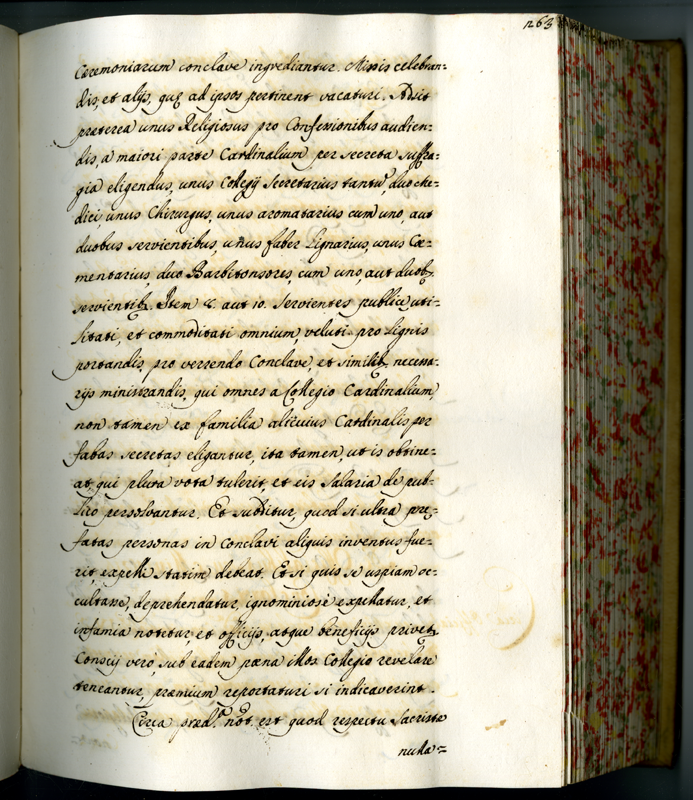 263
Ceremoniarum conclave ingrediantur. Missis celebran=
dis, et alijs, quę ad ipsos pertinent vacaturi. Adsit
præterea unus Religiosus pro Confessionibus audien=
dis, a maiori parte Cardinalium per secreta suffra=
gia eligendus, unus Collegij Secretarius tantũ, duo Me=
dici, unus Chirurgus, unus aromatarius cum uno, aut
duobus servientibus, unus faber Lignarius, unus Cæ=
mentarius, duo Barbitonsores, cum uno, aut duob.
servientib. Item 8. aut 10. servientes publicę uti=
litati, et commoditati omnium, veluti pro Lignis
portandis, pro verrendo Conclave, et similib. necessa=
rijs ministrandis, qui omnes a Collegio Cardinalium,
non tamen ex familia alicuius Cardinalis per
fabas secretas eligantur, ita tamen, ut is obtine=
at, qui plura vota tulerit, et eis salaria de pub=
lico persolvantur. Et subditur, quod si ultra prę=
fatas personas in Conclavi aliquis inventus fue=
rit, expelli statim debeat. Et si quis se uspiam oc=
cultasse, deprehendatur, ignominiosè expellatur, et
infamia notetur, et officijs, atque beneficijs privet.
Conscij verò, sub eadem pæna illos Collegio revelare
teneantur, præmium reportaturi si indicaverint.
Circa præd. not. est quod respectu Sacristæ
nulla=